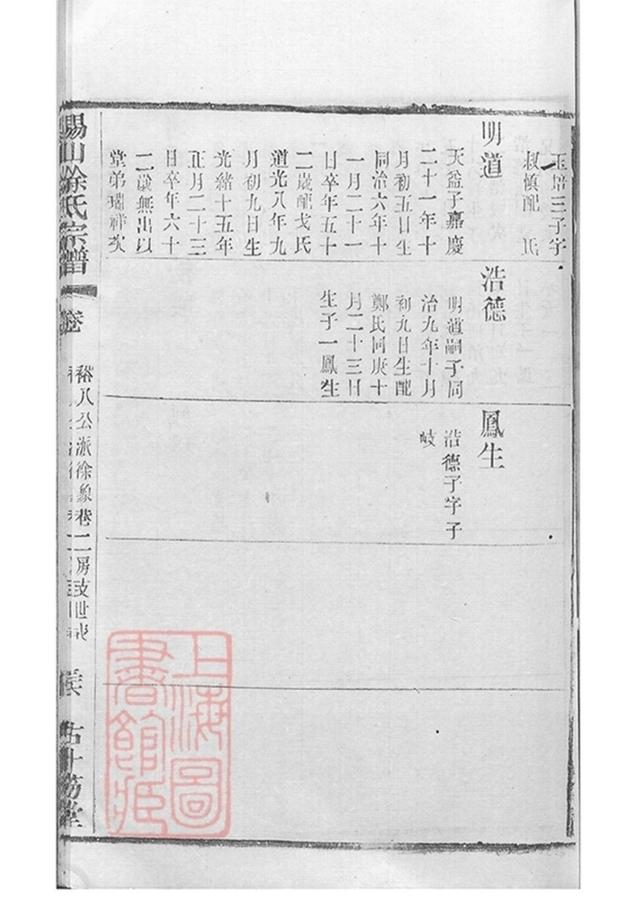 玉培三子字
叔慎配 氏
明道
天益子嘉慶
二十一年十
月初五日生
同治六年十
一月二十一
日卒年五十
二歲配戈氏
道光八年九
月初九日生
光緒十五年
正月二十三
日卒年六十
二歲無出以
堂弟瑞祥次
浩德
明道嗣子同
治九年十月
初九日生配
鄭氏同庚十
月二十三日
生子一鳳生
鳳生
浩德子字子
岐
錫山徐氏宗譜
卷
裕八公派徐象巷二房支世表
上海圖
書館藏